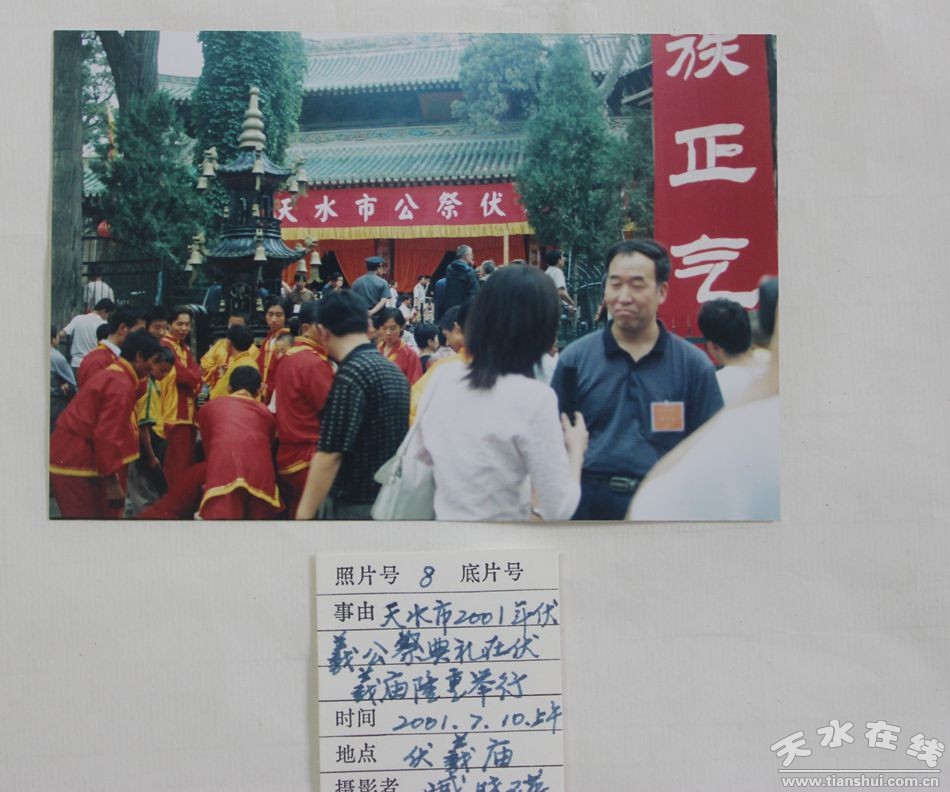 族正气
天水市公祭伏
照片号 8 底片号
事由 天水市2001年伏
羲公祭典礼在伏
羲庙隆重举行
时间 2001.7.10.上午
地点 伏羲庙
摄影者
天水在线
www.tianshui.com.cn